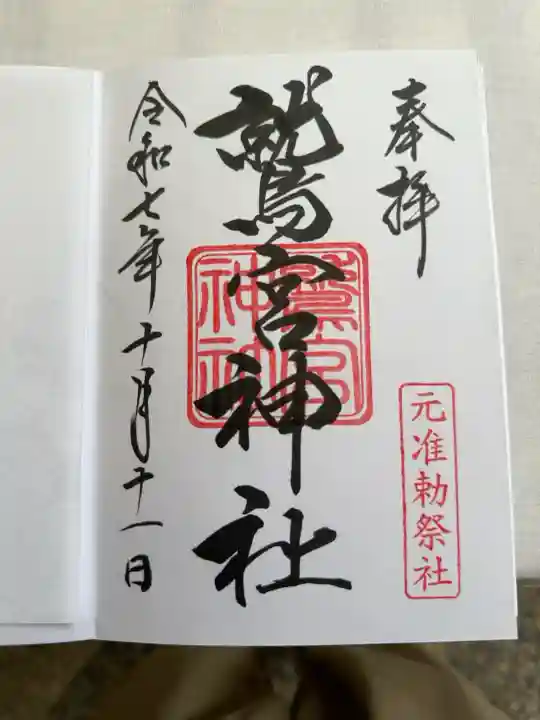 奉拝
元准勅祭社
鷲宮神社
鷲宮
神社
令和七年十月十一日